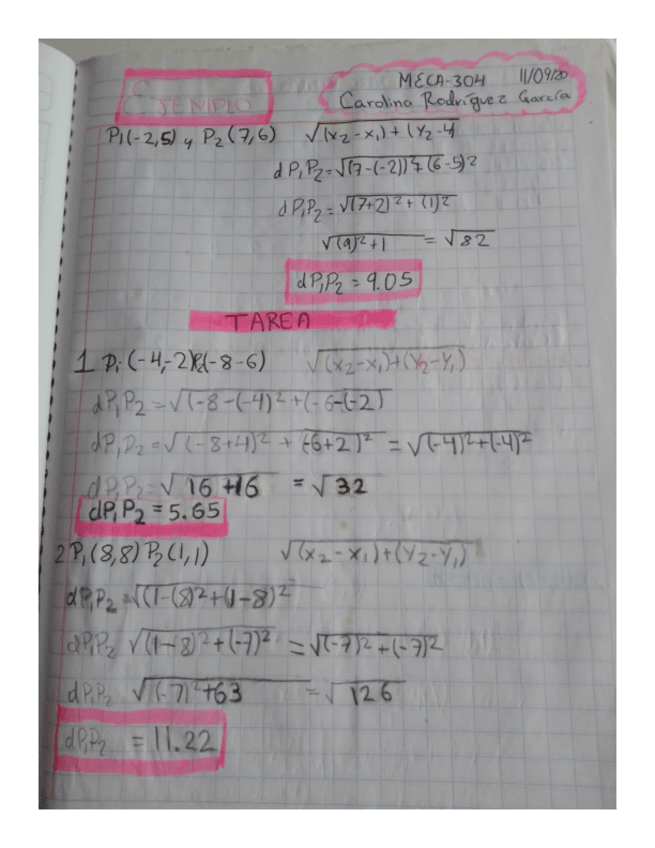 MECA-304 11/09/20
EJEMPLO Carolina Rodríguez García
P₁(-2,5) y P₂(7,6) √(x₂-x₁)+(y₂-y
dP₁P₂=√(7-(-2))²+(6-5)²
dP₁P₂=√(7+2)²+(1)²
√(9)²+1 = √82
dP₁P₂ = 9.05
TAREA
1 P₁(-4,-2)P₂(-8-6) √(x₂-x₁)+(y₂-y₁)
dP₁P₂=√(-8-(-4)²+(-6-(-2)
dP₁P₂=√(-8+4)²+(-6+2)² = √(-4)²+(-4)²
dP₁P₂=√16+16 = √32
dP₁P₂ = 5.65
2 P₁(8,8) P₂(1,1) √(x₂-x₁)+(y₂-y₁)
dP₁P₂=√((1-(8)²+(1-8)²
dP₁P₂ √(1-8)²+(-7)² = √(-7)²+(-7)²
dP₁P₂ √(-7)²+63 = √126
dP₁P₂ = 11.22